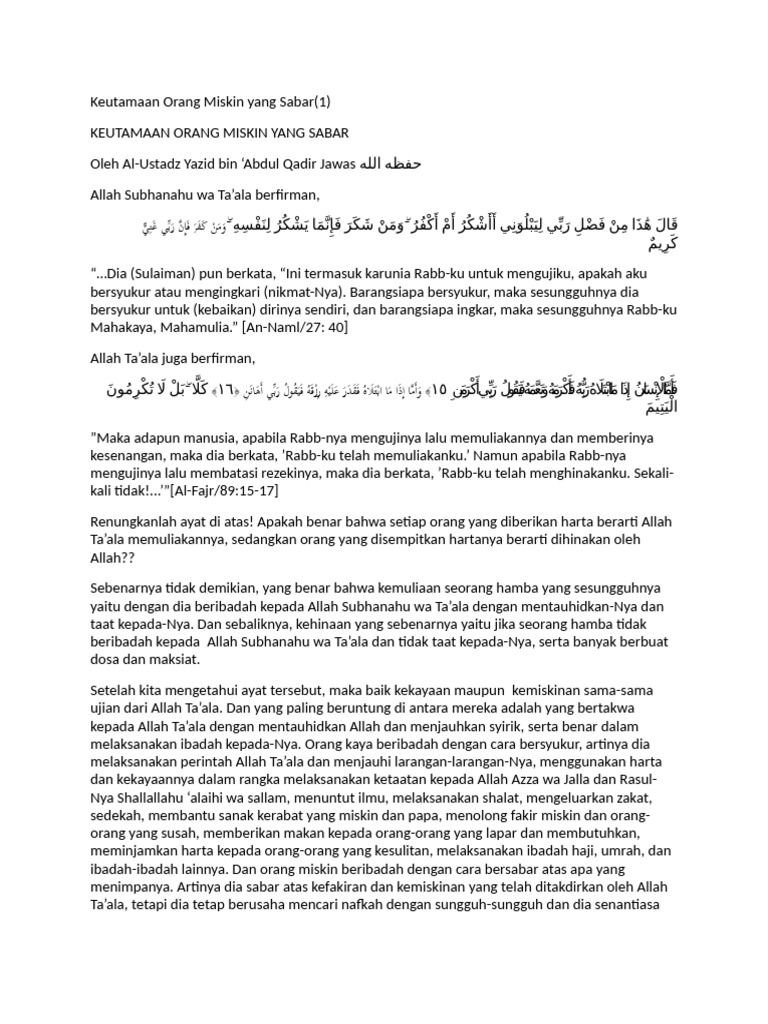 Keutamaan Orang Miskin yang Sabar(1)
KEUTAMAAN ORANG MISKIN YANG SABAR
Oleh Al-Ustadz Yazid bin ‘Abdul Qadir Jawas حفظه الله
Allah Subhanahu wa Ta’ala berfirman,
قَالَ هَٰذَا مِنْ فَضْلِ رَبِّي لِيَبْلُوَنِي أَأَشْكُرُ أَمْ أَكْفُرُ ۖ وَمَنْ شَكَرَ فَإِنَّمَا يَشْكُرُ لِنَفْسِهِ ۖ وَمَنْ كَفَرَ فَإِنَّ رَبِّي غَنِيٌّ
كَرِيمٌ
“…Dia (Sulaiman) pun berkata, “Ini termasuk karunia Rabb-ku untuk mengujiku, apakah aku
bersyukur atau mengingkari (nikmat-Nya). Barangsiapa bersyukur, maka sesungguhnya dia
bersyukur untuk (kebaikan) dirinya sendiri, dan barangsiapa ingkar, maka sesungguhnya Rabb-ku
Mahakaya, Mahamulia.” [An-Naml/27: 40]
Allah Ta’ala juga berfirman,
﴿١٥﴾ وَأَمَّا إِذَا مَا ابْتَلَاهُ فَقَدَرَ عَلَيْهِ رِزْقَهُ فَيَقُولُ رَبِّي أَهَانَنِ ﴿١٦﴾ كَلَّا ۖ بَلْ لَا تُكْرِمُونَ
الْيَتِيمَ
”Maka adapun manusia, apabila Rabb-nya mengujinya lalu memuliakannya dan memberinya
kesenangan, maka dia berkata, ’Rabb-ku telah memuliakanku.’ Namun apabila Rabb-nya
mengujinya lalu membatasi rezekinya, maka dia berkata, ’Rabb-ku telah menghinakanku. Sekali-
kali tidak!...’”[Al-Fajr/89:15-17]
Renungkanlah ayat di atas! Apakah benar bahwa setiap orang yang diberikan harta berarti Allah
Ta’ala memuliakannya, sedangkan orang yang disempitkan hartanya berarti dihinakan oleh
Allah??
Sebenarnya tidak demikian, yang benar bahwa kemuliaan seorang hamba yang sesungguhnya
yaitu dengan dia beribadah kepada Allah Subhanahu wa Ta’ala dengan mentauhidkan-Nya dan
taat kepada-Nya. Dan sebaliknya, kehinaan yang sebenarnya yaitu jika seorang hamba tidak
beribadah kepada  Allah Subhanahu wa Ta’ala dan tidak taat kepada-Nya, serta banyak berbuat
dosa dan maksiat.
Setelah kita mengetahui ayat tersebut, maka baik kekayaan maupun  kemiskinan sama-sama
ujian dari Allah Ta’ala. Dan yang paling beruntung di antara mereka adalah yang bertakwa
kepada Allah Ta’ala dengan mentauhidkan Allah dan menjauhkan syirik, serta benar dalam
melaksanakan ibadah kepada-Nya. Orang kaya beribadah dengan cara bersyukur, artinya dia
melaksanakan perintah Allah Ta’ala dan menjauhi larangan-larangan-Nya, menggunakan harta
dan kekayaannya dalam rangka melaksanakan ketaatan kepada Allah Azza wa Jalla dan Rasul-
Nya Shallallahu ‘alaihi wa sallam, menuntut ilmu, melaksanakan shalat, mengeluarkan zakat,
sedekah, membantu sanak kerabat yang miskin dan papa, menolong fakir miskin dan orang-
orang yang susah, memberikan makan kepada orang-orang yang lapar dan membutuhkan,
meminjamkan harta kepada orang-orang yang kesulitan, melaksanakan ibadah haji, umrah, dan
ibadah-ibadah lainnya. Dan orang miskin beribadah dengan cara bersabar atas apa yang
menimpanya. Artinya dia sabar atas kefakiran dan kemiskinan yang telah ditakdirkan oleh Allah
Ta’ala, tetapi dia tetap berusaha mencari nafkah dengan sungguh-sungguh dan dia senantiasa